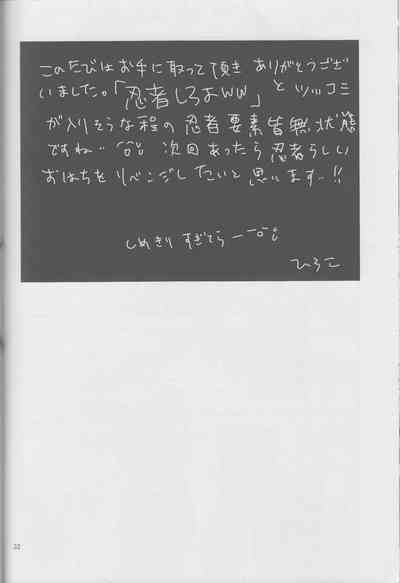 このたびはお手に取って頂き ありがとうござ
いました。「忍者しろよww」とツッコミ
が入りそうな程の忍者要素皆無状態
ですね… 次回あったら忍者らしい
おはちをりべんじしたいと思います…!!
しめきりすぎてらー
ひろこ
32